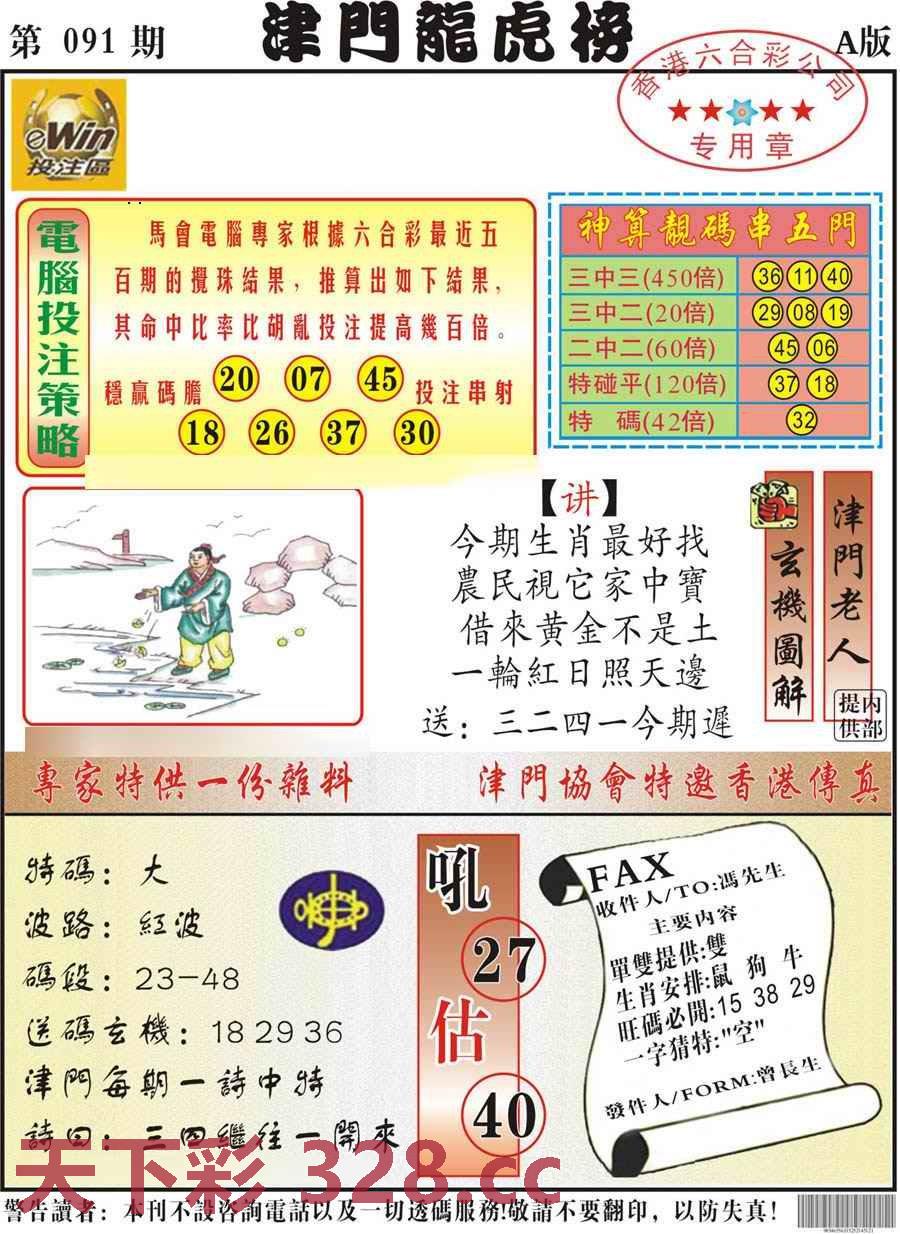 第 091 期
津門龍虎榜
A版
香港六合彩公司
专用章
eWin
投注區
電腦投注策略
馬會電腦專家根據六合彩最近五
百期的攪珠結果，推算出如下結果，
其命中比率比胡亂投注提高幾百倍。
穩贏碼膽 20 07 45 投注串射
18 26 37 30
神算靚碼串五門
三中三(450倍) 36 11 40
三中二(20倍) 29 08 19
二中二(60倍) 45 06
特碰平(120倍) 37 18
特 碼(42倍) 32
【讲】
今期生肖最好找
農民視它家中寶
借來黄金不是土
一輪紅日照天邊
送：三二四一今期遲
玄機圖解
津門老人
内部提供
專家特供一份雜料
津門協會特邀香港傳真
特碼：大
波路：紅波
碼段：23-48
送碼玄機：18 29 36
津門每期一詩中特
詩曰：三四繼往一開來
吼
27
估
40
FAX
收件人/TO:馮先生
主要内容
單雙提供:雙
生肖安排:鼠 狗 牛
旺碼必開:15 38 29
一字猜特:"空"
發件人/FORM:曾長生
天下彩 328.cc
警告讀者：本刊不設咨詢電話以及一切透碼服務!敬請不要翻印，以防失真!